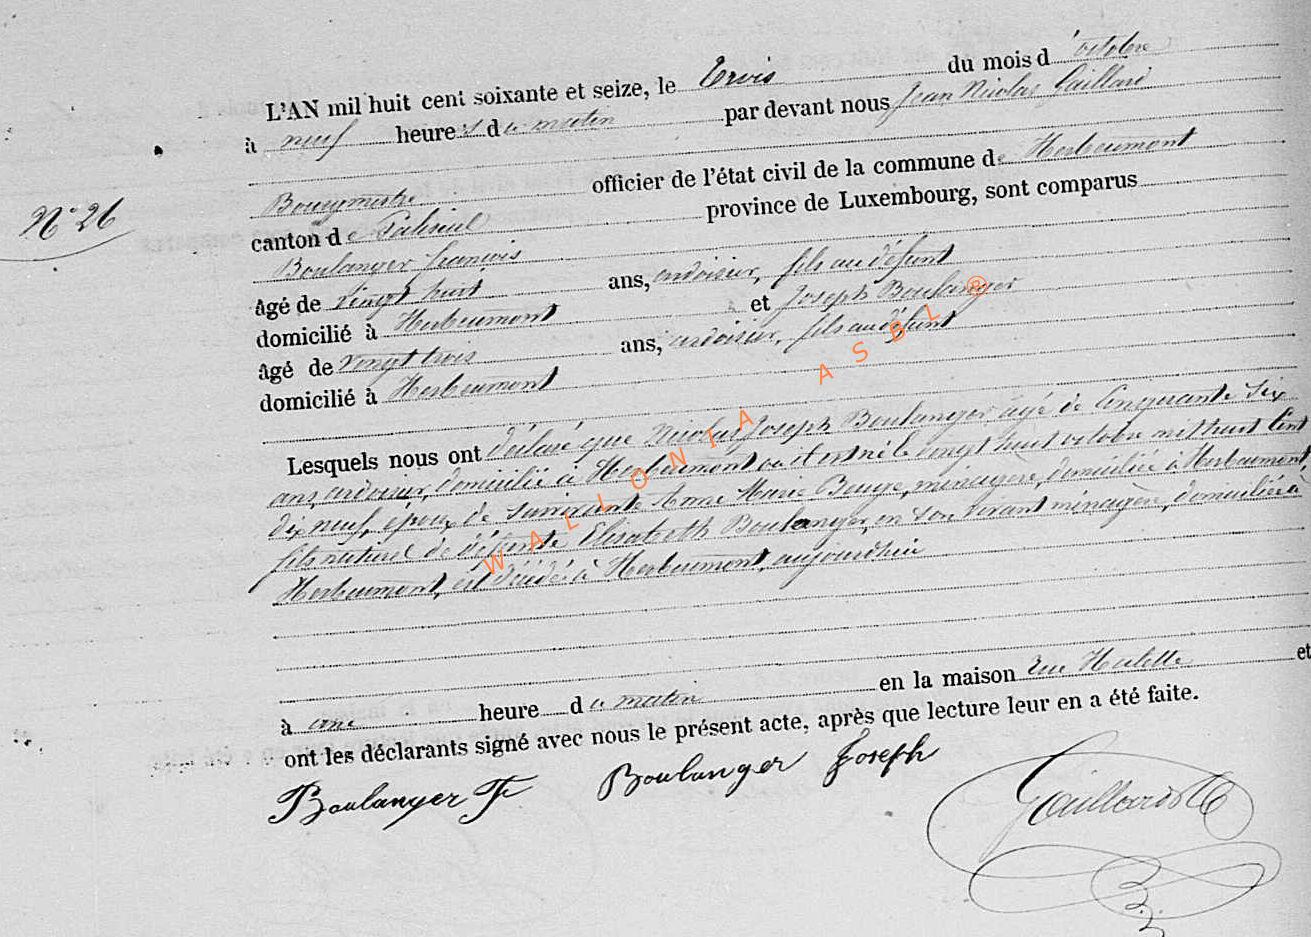 L'AN mil huit cent soixante et seize, le trois du mois d'octobre
à neuf heures du matin par devant nous Jean Nicolas Gaillard
Bourgmestre officier de l'état civil de la commune de Herbeumont
N° 26
canton de Paliseul province de Luxembourg, sont comparus
Boulanger françois
âgé de vingt huit ans, ardoisier, fils au défunt
domicilié à Herbeumont et Joseph Boulanger
âgé de vingt trois ans, ardoisier, fils au défunt
domicilié à Herbeumont
Lesquels nous ont déclaré que Nicolas Joseph Boulanger, agé de Cinquante Six
ans, ardoisier, domicilié à Herbeumont où il est né le vingt huit octobre mil huit cent
dix neuf, époux de survivante Anne Marie Bouge, ménagère, domiciliée à Herbeumont,
fils naturel de défunte Elisabeth Boulanger, en son vivant ménagère, domiciliée à
Herbeumont, est décédé à Herbeumont, aujourdhui
à une heure du matin en la maison Rue et
ont les déclarants signé avec nous le présent acte, après que lecture leur en a été faite.
Boulanger F Boulanger Joseph Gaillard
WALLONIA ASBL ®